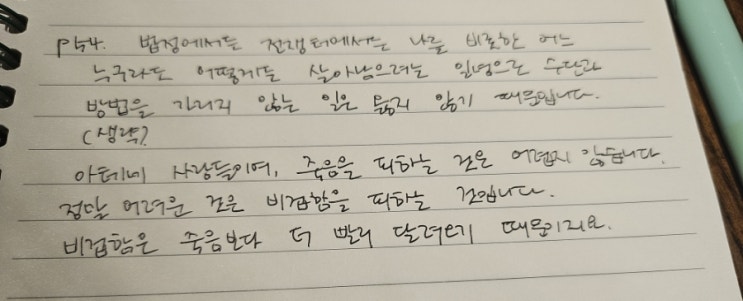 p54. 법정에서든 전쟁터에서든 나를 비롯한 어느
누구라도 어떻게든 살아남으려는 일념으로 수단과
방법을 가리지 않는 일은 옳지 않기 때문입니다.
(생략).
아테네 사람들이여, 죽음을 피하는 것은 어렵지 않습니다.
정말 어려운 것은 비겁함을 피하는 것입니다.
비겁함은 죽음보다 더 빨리 달려오기 때문이지요.